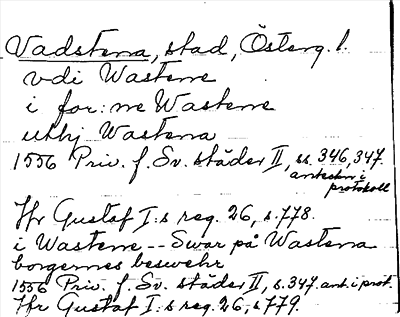 Vadstena, stad, Österg. l.
vdi Wastene
i for:ne Wastene
uthj Wastena
1556 Priv. f. Sv. städer II, ss. 346, 347.
anteckn i
protokoll
Hr Gustaf I:s reg. 26, s. 778.
i Wastene -- Swar på Wastena
borgernes beswehr
1556 Priv. f. Sv. städer II, s. 347. ant. i prot.
Hr Gustaf I:s reg. 26, s. 779.